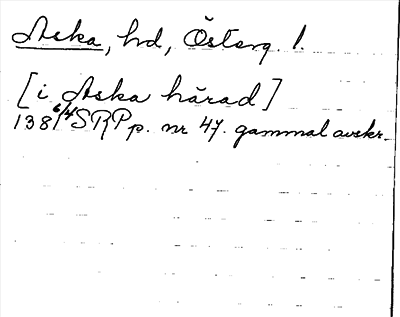 Aska, hd, Österg. l.
[i Aska härad]
1381 6/4 SRP p. nr 47. gammal avskr.